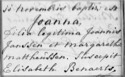 11 novembris baptis est
Joanna,
filia legitima Joannis
Janssen et margaretha
matthaussen, Susceperunt
Elisabeth Benaerts